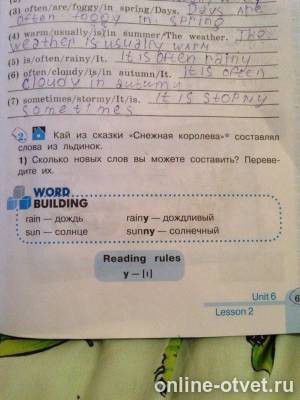 (3) often/are/foggy/in spring/Days. Days are
often foggy in spring
(4) warm/usually/is/in summer/The weather. The
weather is usually warm
(5) is/often/rainy/It. It is often rainy
(6) often/cloudy/is/in autumn/It. It is often
cloudy in autumn
(7) sometimes/stormy/It/is. It is stormy
sometimes
2. Кай из сказки «Снежная королева»* составлял
слова из льдинок.
1) Сколько новых слов вы можете составить? Переве-
дите их.
WORD
BUILDING
rain — дождь rainy — дождливый
sun — солнце sunny — солнечный
Reading rules
y — [ı]
Unit 6
Lesson 2
6
online-otvet.ru